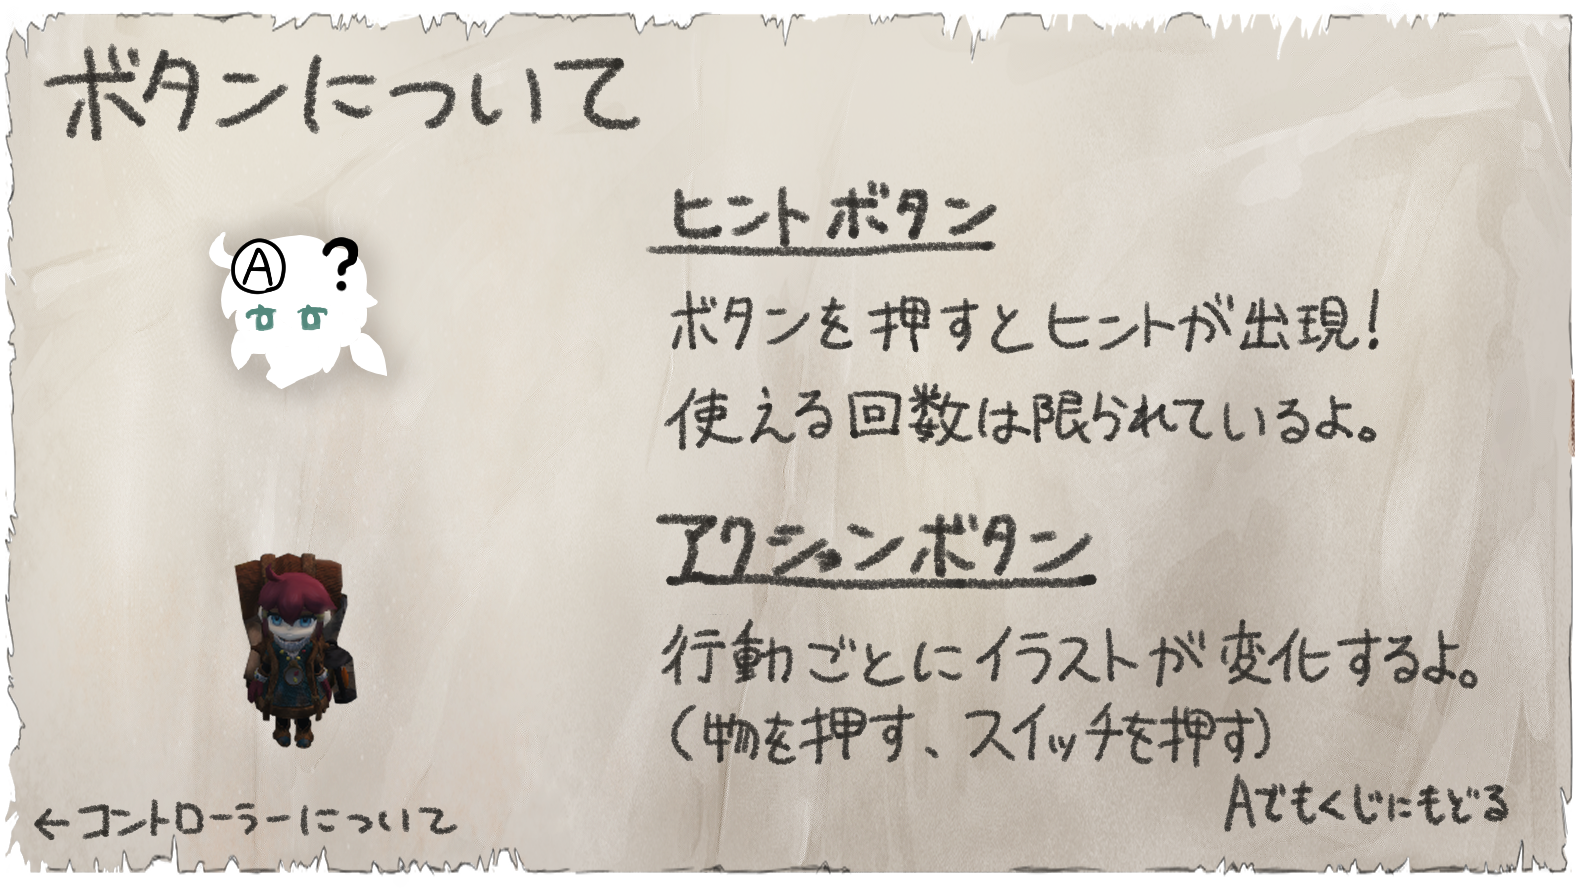 ボタンについて
Ⓐ ?
ヒントボタン
ボタンを押すとヒントが出現!
使える回数は限られているよ。
アクションボタン
行動ごとにイラストが変化するよ。
(物を押す、スイッチを押す)
Aでもくじにもどる
←コントローラーについて